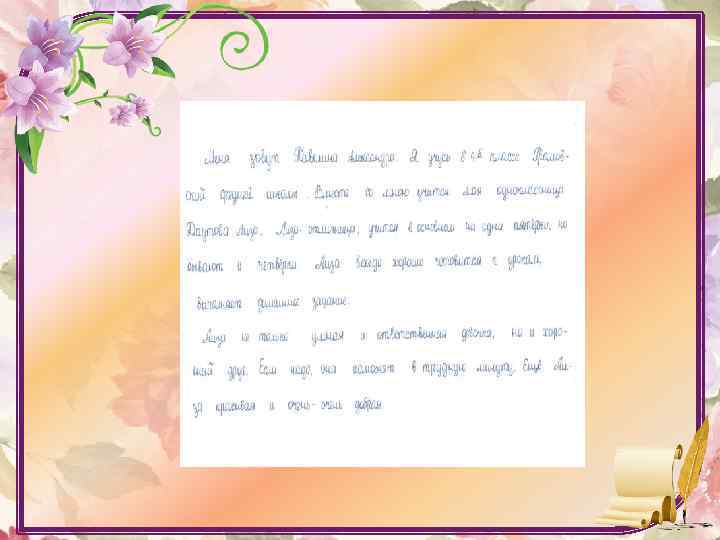 Меня зовут Павлина Александра. Я учусь в 4Б классе
ской средней школы. Вместе со мною учится моя одноклассница
Даутова Лиза. Лиза- отличница, учится в основном на одни пятёрки, но
бывают и четвёрки. Лиза всегда хорошо готовится к урокам,
выполняет домашнее задание.
Лиза не только умная и ответственная девочка, но и хоро-
ший друг. Если надо, она поможет в трудную минуту. Ещё Ли-
за красивая и очень-очень добрая.